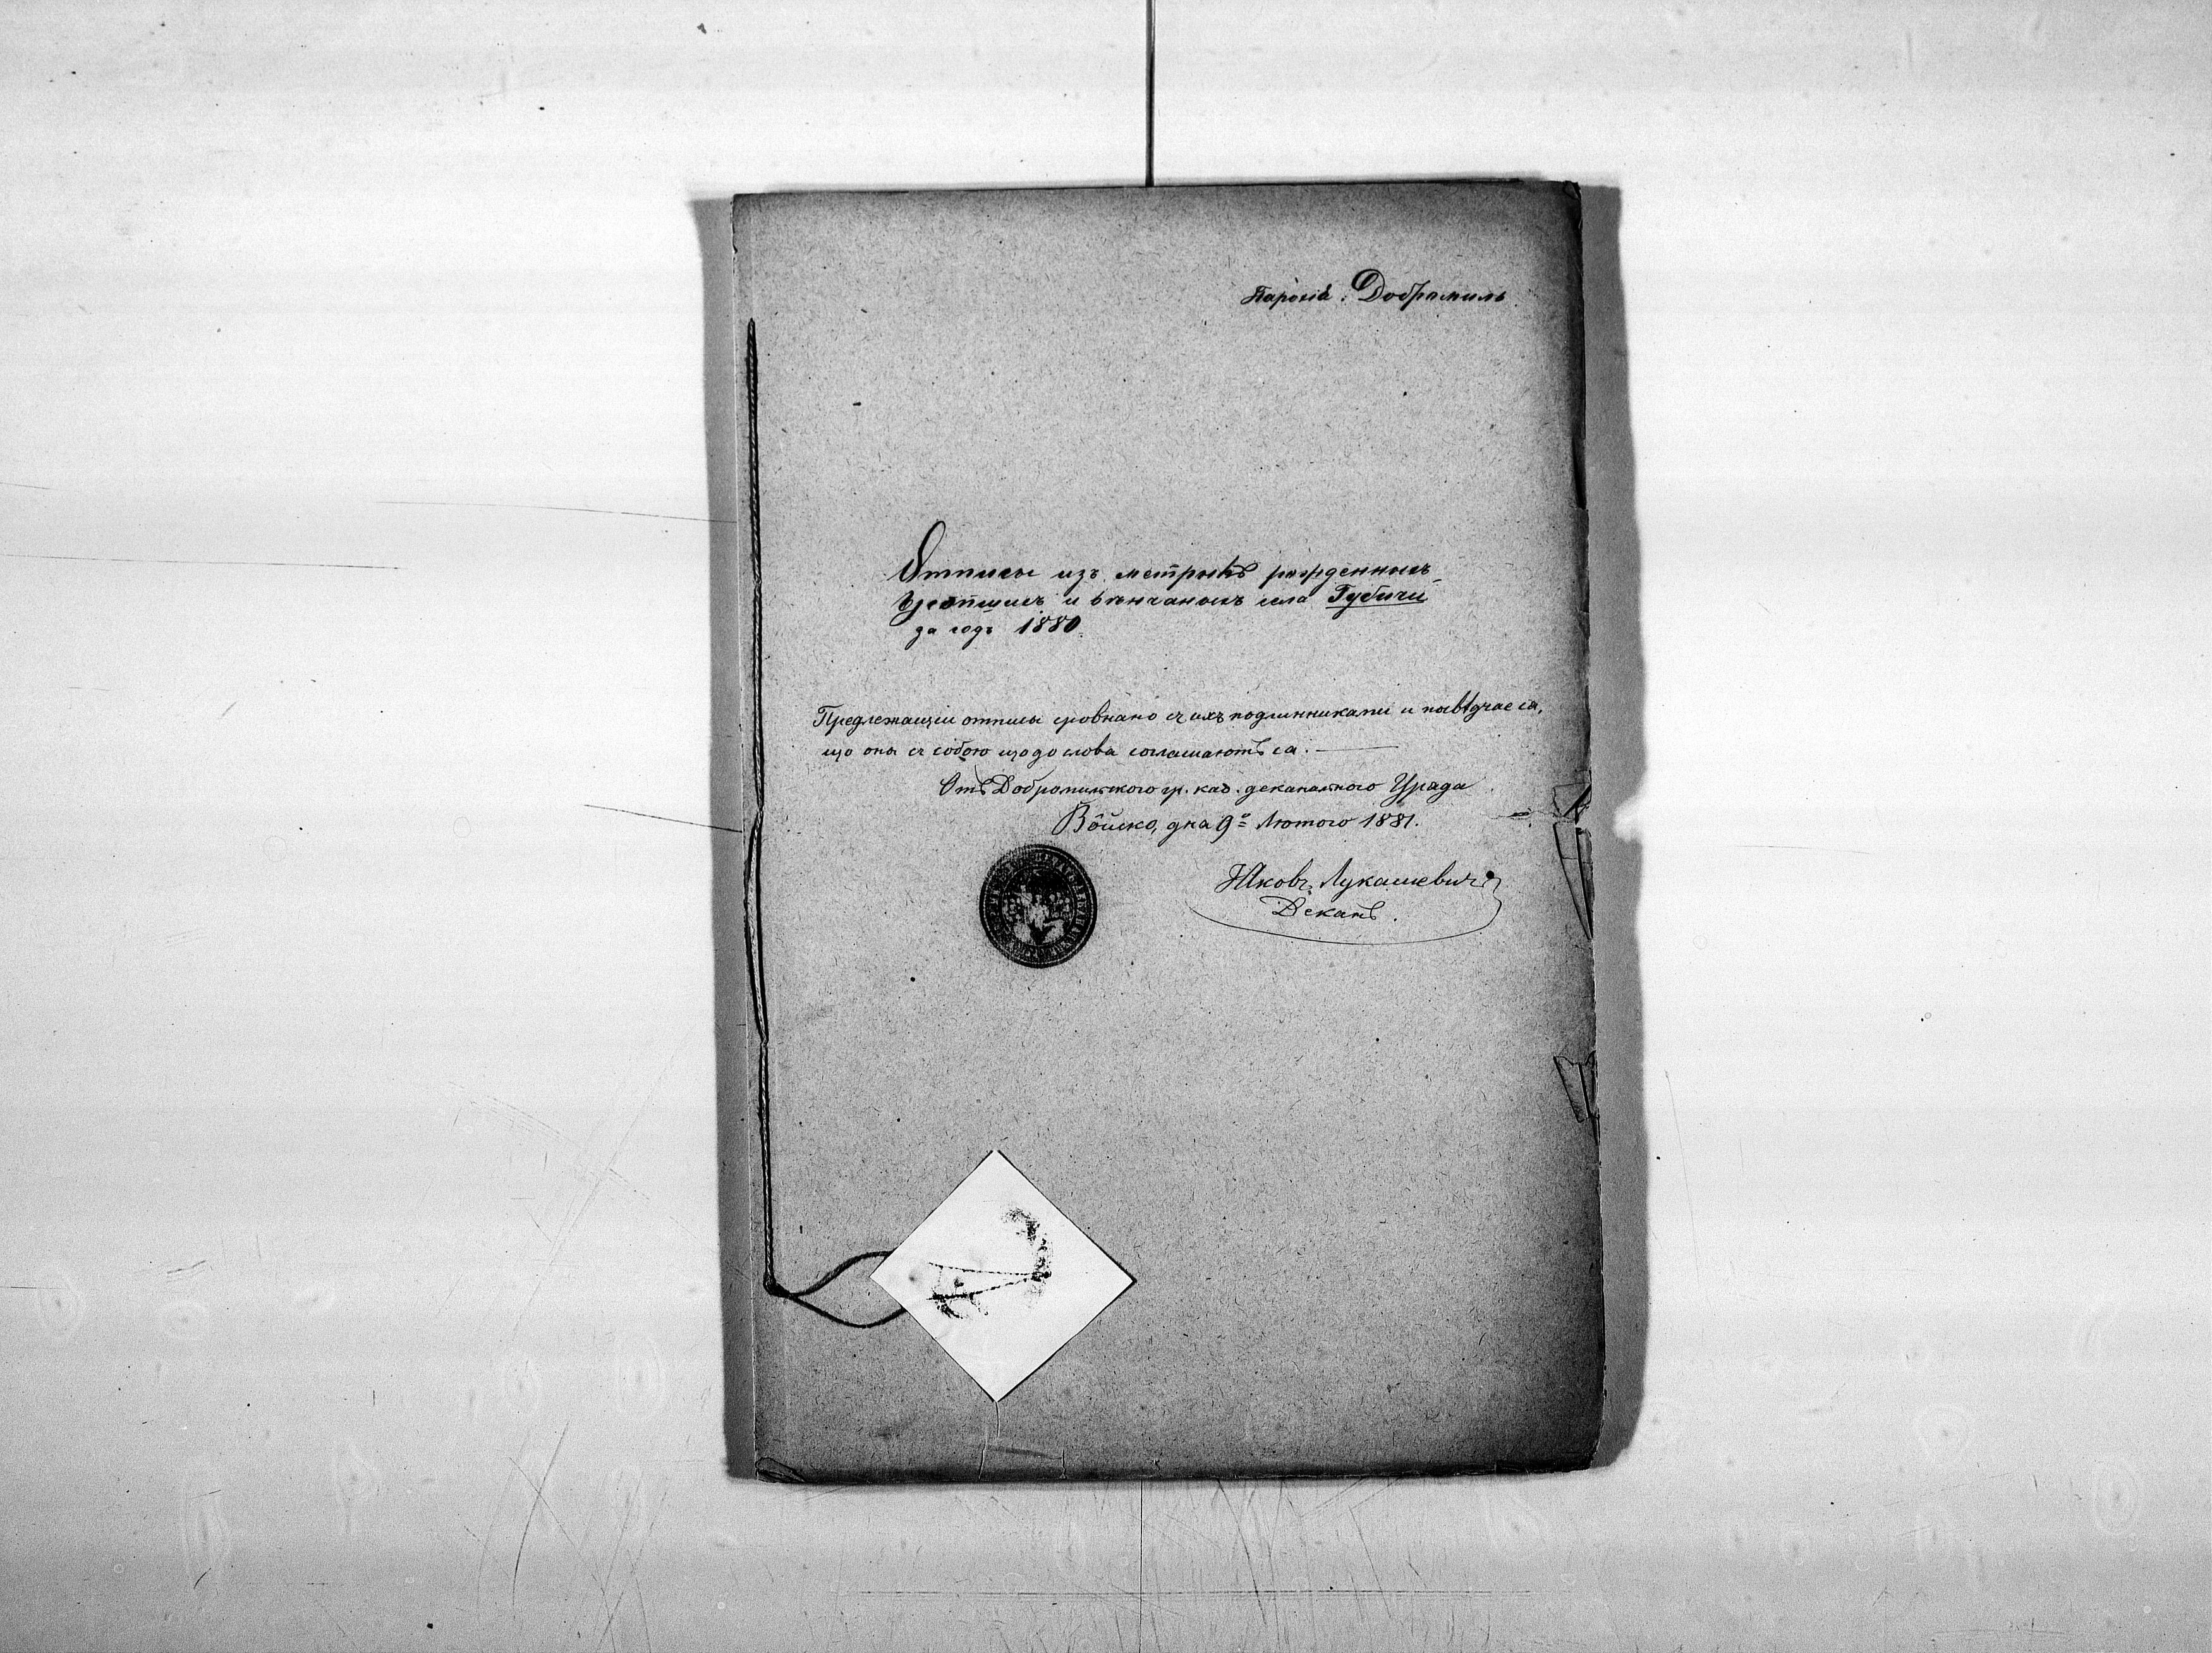 Парохія: Добромиль
Отписы изъ метрыкъ рожденныхъ
Усопшихъ и вѣнчаныхъ села Губичи
за годъ 1880.
Предлежащіи отписы сровнано съ ихъ подлинниками и посвѣдчае ся,
що оны съ собою що до слова соглашаютъ ся. —
Отъ Добромильского гр. каѳ. деканального Уряда
Вôйско, дня 9º Лютого 1881.
Яковъ Лукашевичъ
Деканъ.